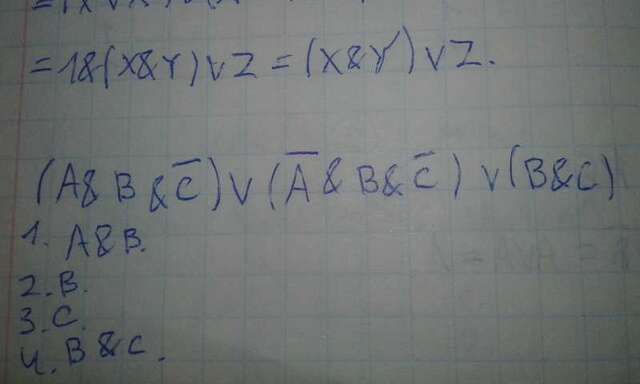 =1&(X&Y)VZ=(X&Y)VZ.
(A&B&C̅)V(A̅&B&C̅)V(B&C)
1. A&B.
2. B.
3. C.
4. B&C.